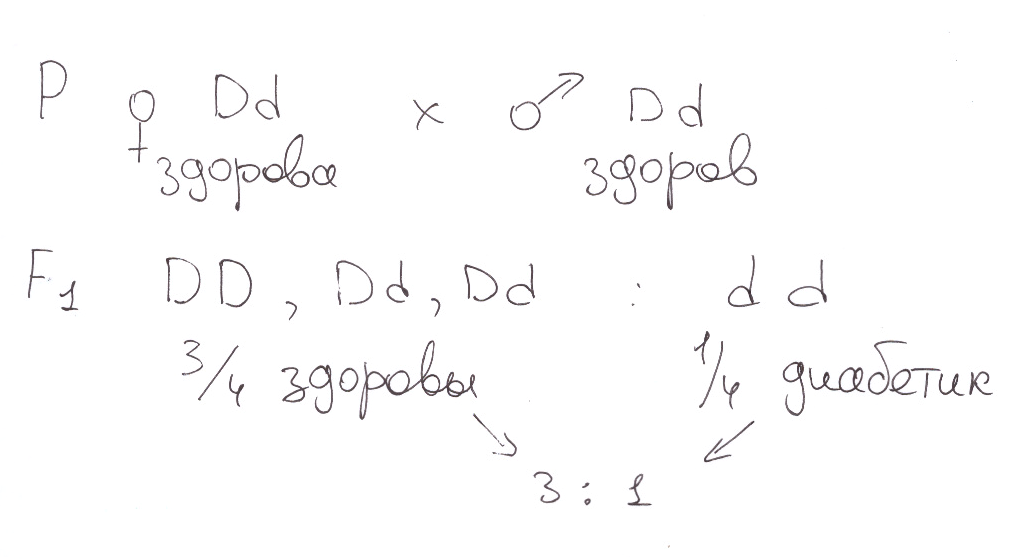 P ♀ Dd x ♂ Dd
здорова здоров
F1 DD, Dd, Dd : dd
3/4 здоровы 1/4 диабетик
3 : 1